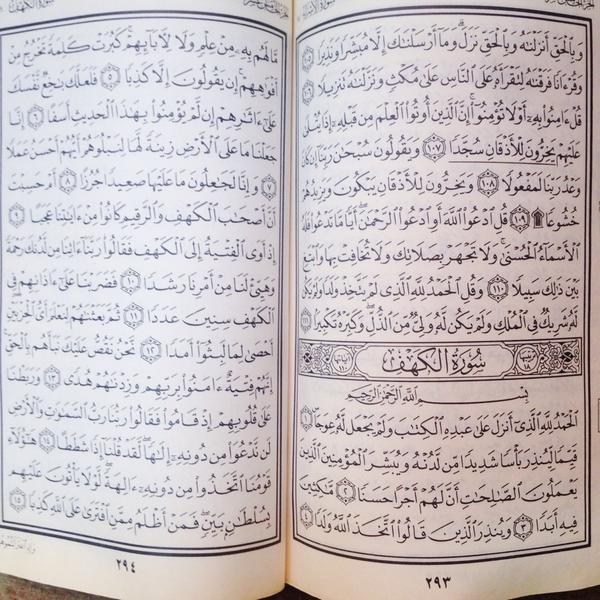 سورة الإسراء
وَبِالْحَقِّ أَنزَلْنَٰهُ وَبِالْحَقِّ نَزَلَ وَمَآ أَرْسَلْنَٰكَ إِلَّا مُبَشِّرًا وَنَذِيرًا ١٠٥
وَقُرْءَانًا فَرَقْنَٰهُ لِتَقْرَأَهُۥ عَلَى النَّاسِ عَلَىٰ مُكْثٍ وَنَزَّلْنَٰهُ تَنزِيلًا ١٠٦
قُلْ ءَامِنُوا۟ بِهِۦٓ أَوْ لَا تُؤْمِنُوٓا۟ إِنَّ الَّذِينَ أُوتُوا۟ الْعِلْمَ مِن قَبْلِهِۦٓ إِذَا يُتْلَىٰ
عَلَيْهِمْ يَخِرُّونَ لِلْأَذْقَانِ سُجَّدًا ١٠٧ وَيَقُولُونَ سُبْحَٰنَ رَبِّنَآ إِن كَانَ
وَعْدُ رَبِّنَا لَمَفْعُولًا ١٠٨ وَيَخِرُّونَ لِلْأَذْقَانِ يَبْكُونَ وَيَزِيدُهُمْ
خُشُوعًا ۩ ١٠٩ قُلِ ادْعُوا۟ اللَّهَ أَوِ ادْعُوا۟ الرَّحْمَٰنَ أَيًّا مَّا تَدْعُوا۟ فَلَهُ
الْأَسْمَآءُ الْحُسْنَىٰ وَلَا تَجْهَرْ بِصَلَاتِكَ وَلَا تُخَافِتْ بِهَا وَابْتَغِ
بَيْنَ ذَٰلِكَ سَبِيلًا ١١٠ وَقُلِ الْحَمْدُ لِلَّهِ الَّذِى لَمْ يَتَّخِذْ وَلَدًا وَلَمْ يَكُن
لَّهُۥ شَرِيكٌ فِى الْمُلْكِ وَلَمْ يَكُن لَّهُۥ وَلِىٌّ مِّنَ الذُّلِّ وَكَبِّرْهُ تَكْبِيرًا ١١١
ترتيبها ١٨ سُورَةُ الكَهْفِ آياتها ١١٠
بِسْمِ اللَّهِ الرَّحْمَٰنِ الرَّحِيمِ
الْحَمْدُ لِلَّهِ الَّذِىٓ أَنزَلَ عَلَىٰ عَبْدِهِ الْكِتَٰبَ وَلَمْ يَجْعَل لَّهُۥ عِوَجَا ١
قَيِّمًا لِّيُنذِرَ بَأْسًا شَدِيدًا مِّن لَّدُنْهُ وَيُبَشِّرَ الْمُؤْمِنِينَ الَّذِينَ
يَعْمَلُونَ الصَّٰلِحَٰتِ أَنَّ لَهُمْ أَجْرًا حَسَنًا ٢ مَّٰكِثِينَ
فِيهِ أَبَدًا ٣ وَيُنذِرَ الَّذِينَ قَالُوا۟ اتَّخَذَ اللَّهُ وَلَدًا ٤
٢٩٣
سورة الكهف
مَّا لَهُم بِهِۦ مِنْ عِلْمٍ وَلَا لِءَابَآئِهِمْ كَبُرَتْ كَلِمَةً تَخْرُجُ مِنْ
أَفْوَٰهِهِمْ إِن يَقُولُونَ إِلَّا كَذِبًا ٥ فَلَعَلَّكَ بَٰخِعٌ نَّفْسَكَ
عَلَىٰٓ ءَاثَٰرِهِمْ إِن لَّمْ يُؤْمِنُوا۟ بِهَٰذَا الْحَدِيثِ أَسَفًا ٦ إِنَّا
جَعَلْنَا مَا عَلَى الْأَرْضِ زِينَةً لَّهَا لِنَبْلُوَهُمْ أَيُّهُمْ أَحْسَنُ عَمَلًا
٧ وَإِنَّا لَجَٰعِلُونَ مَا عَلَيْهَا صَعِيدًا جُرُزًا ٨ أَمْ حَسِبْتَ
أَنَّ أَصْحَٰبَ الْكَهْفِ وَالرَّقِيمِ كَانُوا۟ مِنْ ءَايَٰتِنَا عَجَبًا ٩
إِذْ أَوَى الْفِتْيَةُ إِلَى الْكَهْفِ فَقَالُوا۟ رَبَّنَآ ءَاتِنَا مِن لَّدُنكَ رَحْمَةً
وَهَيِّئْ لَنَا مِنْ أَمْرِنَا رَشَدًا ١٠ فَضَرَبْنَا عَلَىٰٓ ءَاذَانِهِمْ فِى
الْكَهْفِ سِنِينَ عَدَدًا ١١ ثُمَّ بَعَثْنَٰهُمْ لِنَعْلَمَ أَىُّ الْحِزْبَيْنِ
أَحْصَىٰ لِمَا لَبِثُوٓا۟ أَمَدًا ١٢ نَّحْنُ نَقُصُّ عَلَيْكَ نَبَأَهُم بِالْحَقِّ
إِنَّهُمْ فِتْيَةٌ ءَامَنُوا۟ بِرَبِّهِمْ وَزِدْنَٰهُمْ هُدًى ١٣ وَرَبَطْنَا
عَلَىٰ قُلُوبِهِمْ إِذْ قَامُوا۟ فَقَالُوا۟ رَبُّنَا رَبُّ السَّمَٰوَٰتِ وَالْأَرْضِ
لَن نَّدْعُوَا۟ مِن دُونِهِۦٓ إِلَٰهًا لَّقَدْ قُلْنَآ إِذًا شَطَطًا ١٤ هَٰٓؤُلَآءِ
قَوْمُنَا اتَّخَذُوا۟ مِن دُونِهِۦٓ ءَالِهَةً لَّوْلَا يَأْتُونَ عَلَيْهِم
بِسُلْطَٰنٍۭ بَيِّنٍ فَمَنْ أَظْلَمُ مِمَّنِ افْتَرَىٰ عَلَى اللَّهِ كَذِبًا ١٥
٢٩٤